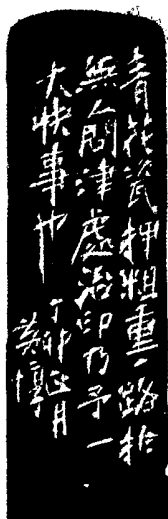 青花瓷押粗重一路於
無人問津處治印乃予一
大快事也 丁卯正月
黃惇